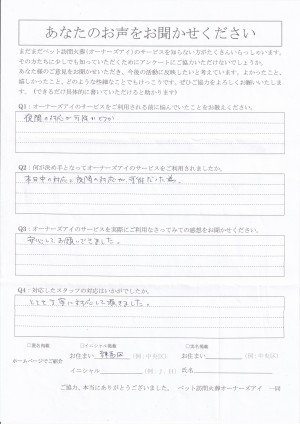 あなたのお声をお聞かせください
まだまだペット訪問火葬(オーナーズアイ)のサービスを知らない方がたくさんいらっしゃいます。
その方たちに少しでも知っていただくためにアンケートにご協力いただけないでしょうか。
あなた様のご意見をお聞かせいただき、今後の活動に反映したいと考えています。よかったこと、
嬉しかったこと、どのような些細なことでもけっこうです。ぜひご協力をよろしくお願いいたします。
(できるだけ具体的に書いていただけると助かります)
Q1:オーナーズアイのサービスをご利用される前に悩んでいたことをお教えください。
夜間の対応が可能かどうか
Q2:何が決め手となってオーナーズアイのサービスをご利用されましたか。
本日中の対応と夜間の対応が可能だった為。
Q3:オーナーズアイのサービスを実際にご利用なさってみての感想をお聞かせください。
安心してお願いできました。
Q4:対応したスタッフの対応はいかがでしたか。
とても丁寧に対応して頂きました。
○匿名掲載 ○イニシャル掲載 ○実名掲載
ホームページでご紹介
お住まい 緑区 (例:中央区) お住まい (例:中央区)
イニシャル (例:T.H) 氏名
ご協力、本当にありがとうございました。 ペット訪問火葬オーナーズアイ 一同